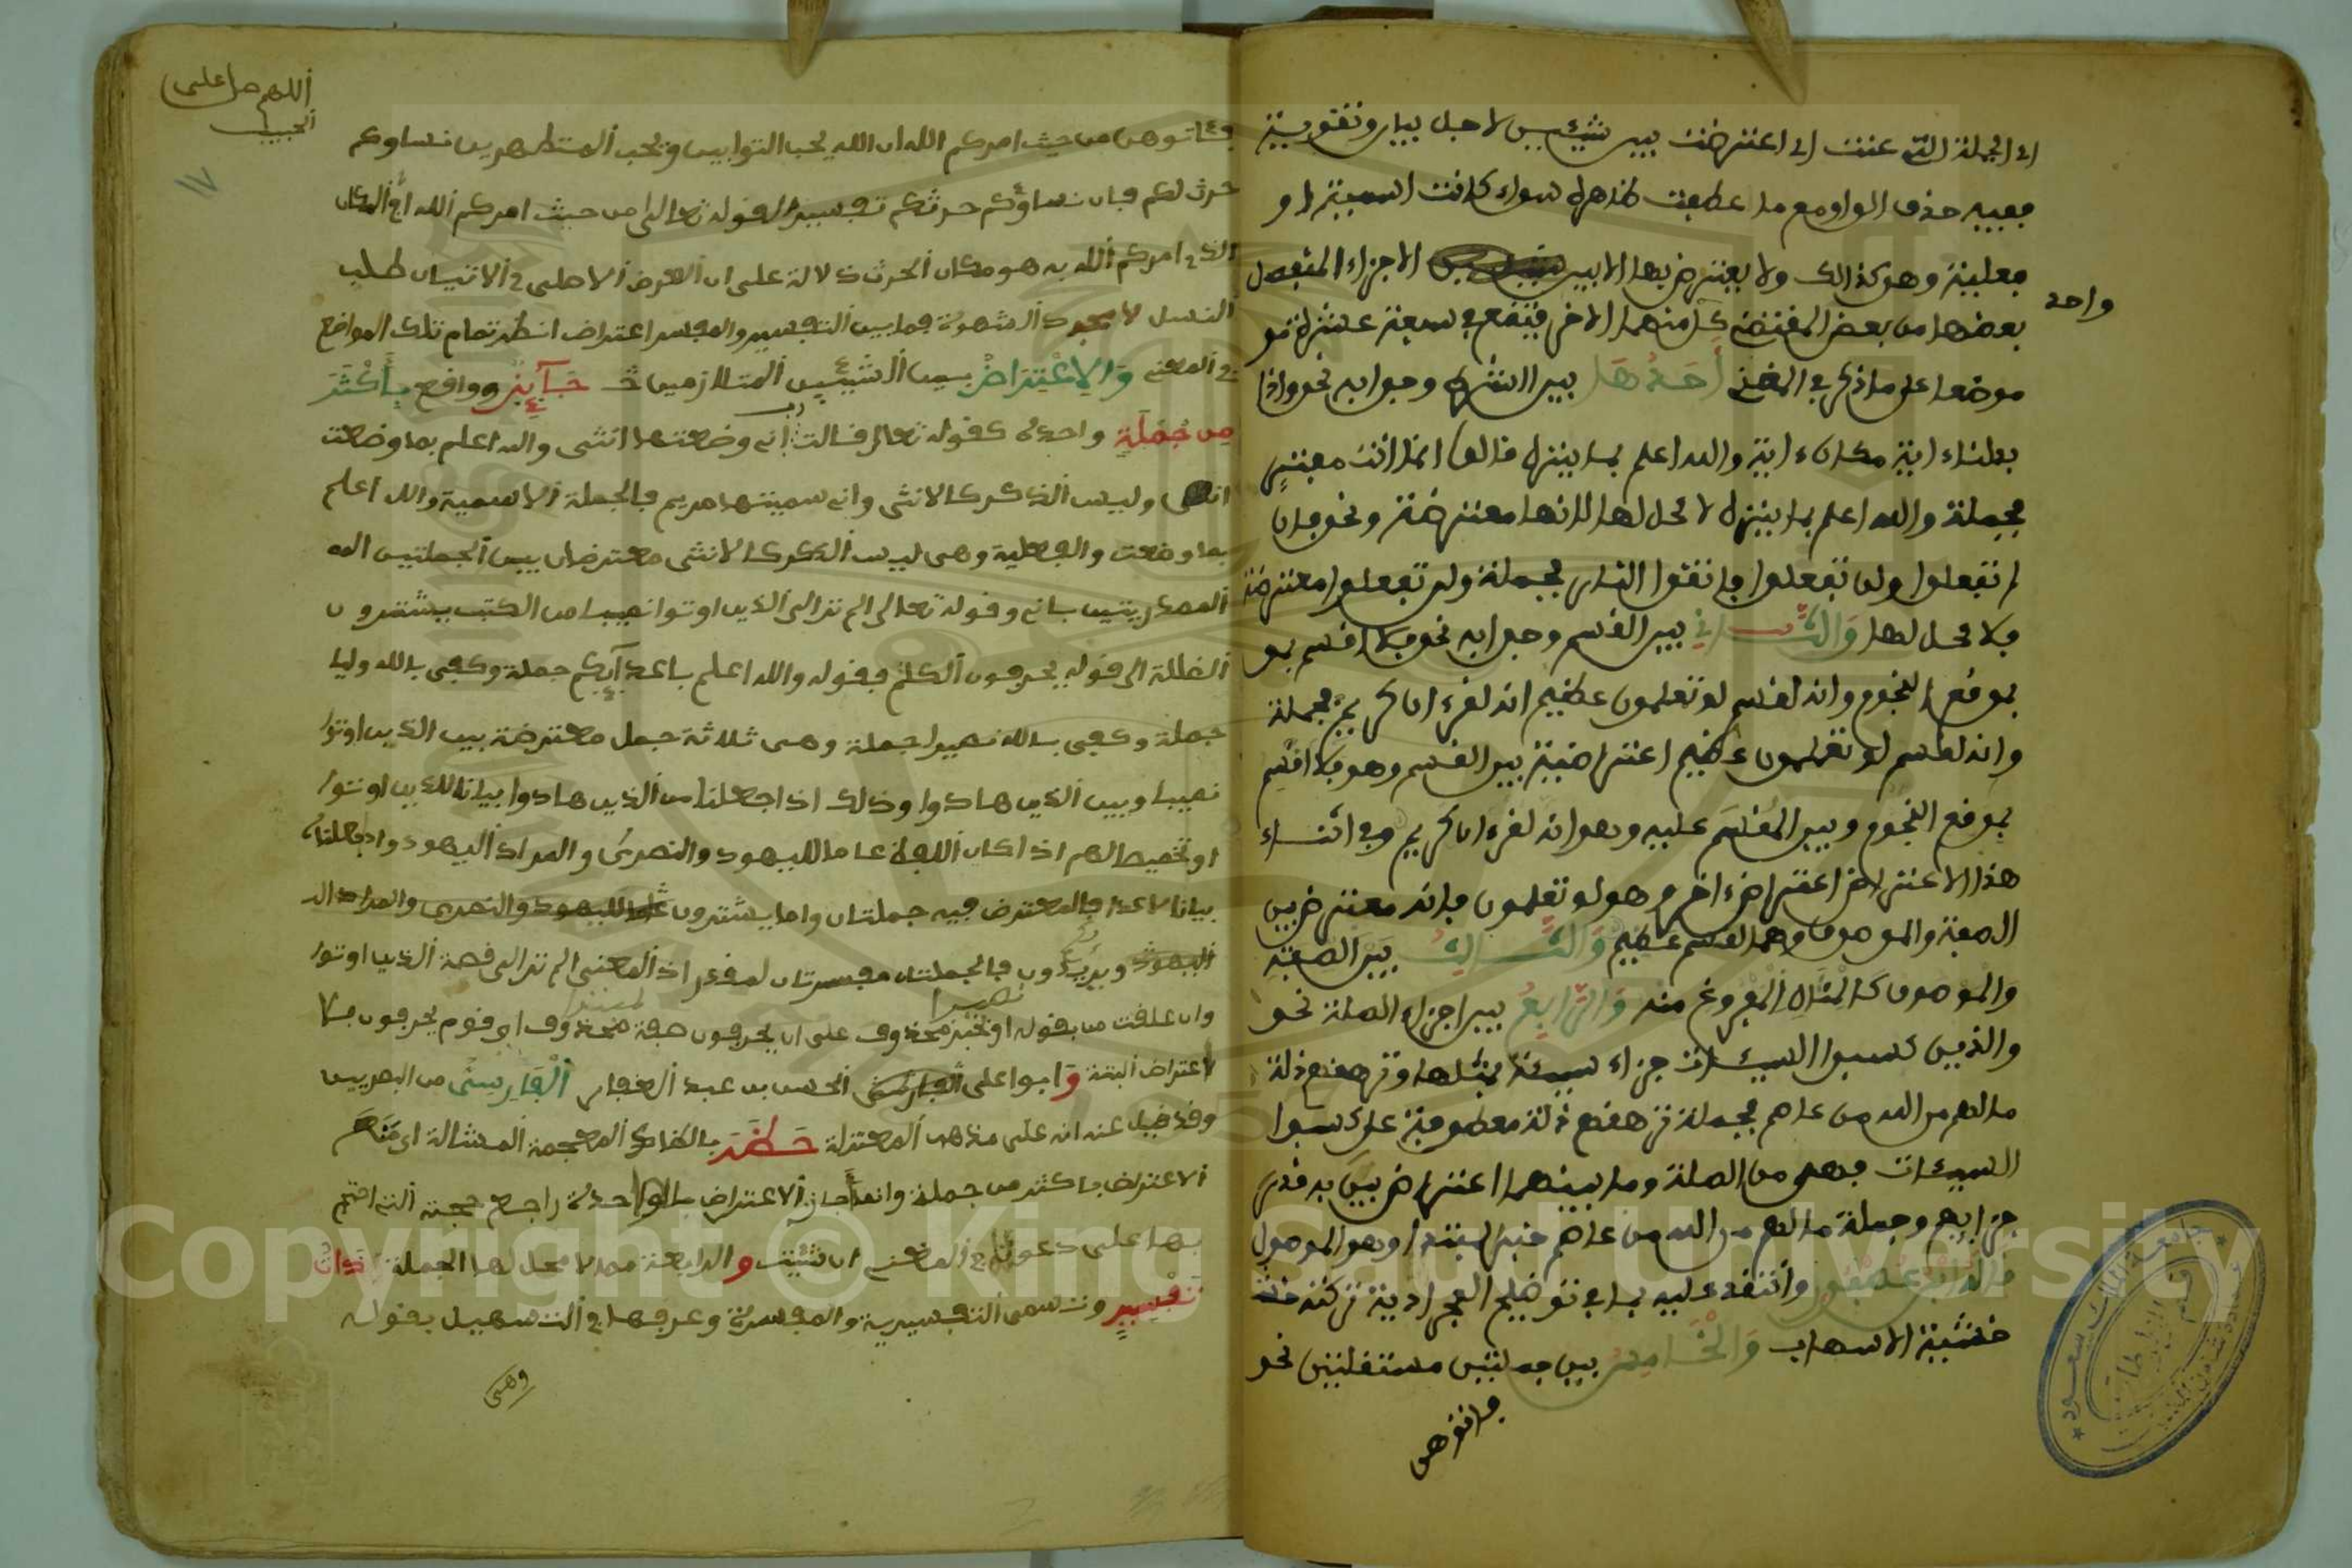 اي الجملة التي عنت اي اعترضت بين شيئين لاجل بيان وتقوية
ففيه حذف الواو مع ما عطفت ظاهرة سواء كانت اسمية او
فعلية وهو كذالك ولا يعترض بها الا بين الاجزاء المنفصل
واحد
بعضها من بعض المقتضي كل منهما الاخر فيتقع في سبعة عشرة نو
موضعا على ما ذكر في المغني أحدها بين الشرط وجوابه نحو واذا
بدلناء اية مكان ءاية والله اعلم بما ينزل قالوا انما انت مفتر
فجملة والله اعلم بما ينزل لا محل لها لانها معترضة ونحو فان
لم تفعلوا ولن تفعلوا فاتقوا النار فجملة ولن تفعلوا معترضة
فلا محل لها والثاني بين القسم وجوابه نحو فلا اقسم بمو
بموقع النجوم وانه لقسم لو تعلمون عظيم انه لقرءان كريم فجملة
وانه لقسم لو تعلمون عظيم اعتراضية بين القسم وهو فلا اقسم
بموقع النجوم وبين المقسم عليه وهو انه لقرءان كريم وفي اثناء
هذا الاعتراض اعتراض ءاخر وهو لو تعلمون فانه معترض بين
الصفة والموصوف وهما لقسم عظيم والثالث بين الصفة
والموصوف كالمثال المفروغ منه والرابع بين اجزاء الصلة نحو
والذين كسبوا السيئات جزاء سيئة بمثلها وترهقهم ذلة
ما لهم من الله من عاصم فجملة ترهقهم ذلة معطوفة على كسبوا
السيئات فهي من الصلة وما بينهما اعتراض بين به قدر
جزايهم وجملة ما لهم من الله من عاصم خبر المبتدا وهو الموصول
قاله ابن عصفور وانتقد عليه بما في توضيح تركته
خشية الاسهاب والخامس بين جملتين مستقلتين نحو
فاتوهن
اللهم صل على
الحبيب
١٧
فاتوهن من حيث امركم الله ان الله يحب التوابين ويحب المتطهرين نساوكم
حرث لكم فان نساؤكم حرث لكم تفسير لقوله تعالى من حيث امركم الله اي المكان
الذي امركم الله به هو مكان الحرث دلالة على ان الغرض الاصلي في الاتيان طلب
النسل لا مجرد الشهوة فما بين التفسير والمفسر اعتراض انظر تمام تلك المواضع
في المغني والاعتراض بين الشيئين المتلازمين جآئز وواقع بأكثر
من جملة واحدة كقوله تعالى قالت رب اني وضعتها انثى والله اعلم بما وضعت
وليس الذكر كالانثى واني سميتها مريم فالجملة الاسمية والله اعلم
بما وضعت والفعلية وهي ليس الذكر كالانثى معترضان بين الجملتين
المصدريتين باني وقوله تعالى الم تر الى الذين اوتوا نصيبا من الكتب يشترون
الضللة الى قوله يحرفون الكلم فقوله والله اعلم باعدآئكم جملة وكفى بالله وليا
جملة وكفى بالله نصيرا جملة وهي ثلاثة جمل معترضة بين الذين اوتوا
نصيبا وبين الذين هادوا وذلك اذا جعلنا من الذين هادوا بيانا للذين اوتوا
او تخصيصا لهم اذا كان اللفظ عاما لليهود والنصرى والمراد اليهود واذ جعلنا
بيانا لاعدائكم فالمعترض فيه جملتان واما يشترون
ويريدون فالجملتان مفسرتان لمقدر اذ المعنى الم تر الى قصة الذين اوتوا
وان علقت من بقوله نصيرا او بخبر محذوف على ان يحرفون صفة لمبتدا محذوف اي قوم يحرفون فلا
لاعتراض البتة وابوا على الحسن بن عبد الغفار الفارسي من البصريين
وقد قيل عنه انه على مذهب المعتزلة حظر بالظاء المعجمة المشالة اي منع
الاعتراض باكثر من جملة وانما جاز الاعتراض بالواحدة راجع حجته التي احتج
بها على دعواه في المغني ان شئت والرابعة مما لا محل لها الجملة ذات
تفسير وتسمى التفسيرية والمفسرة وعرفها في التسهيل بقوله
وهي